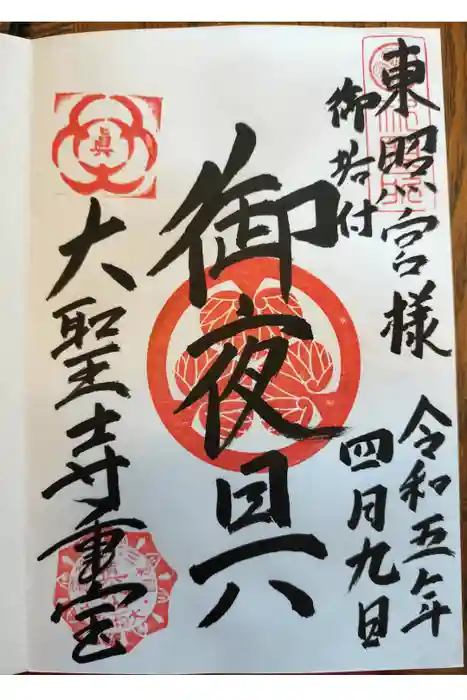 東照宮様
御拾付
令和五年
四月九日
御夜具
眞
大聖寺重宝